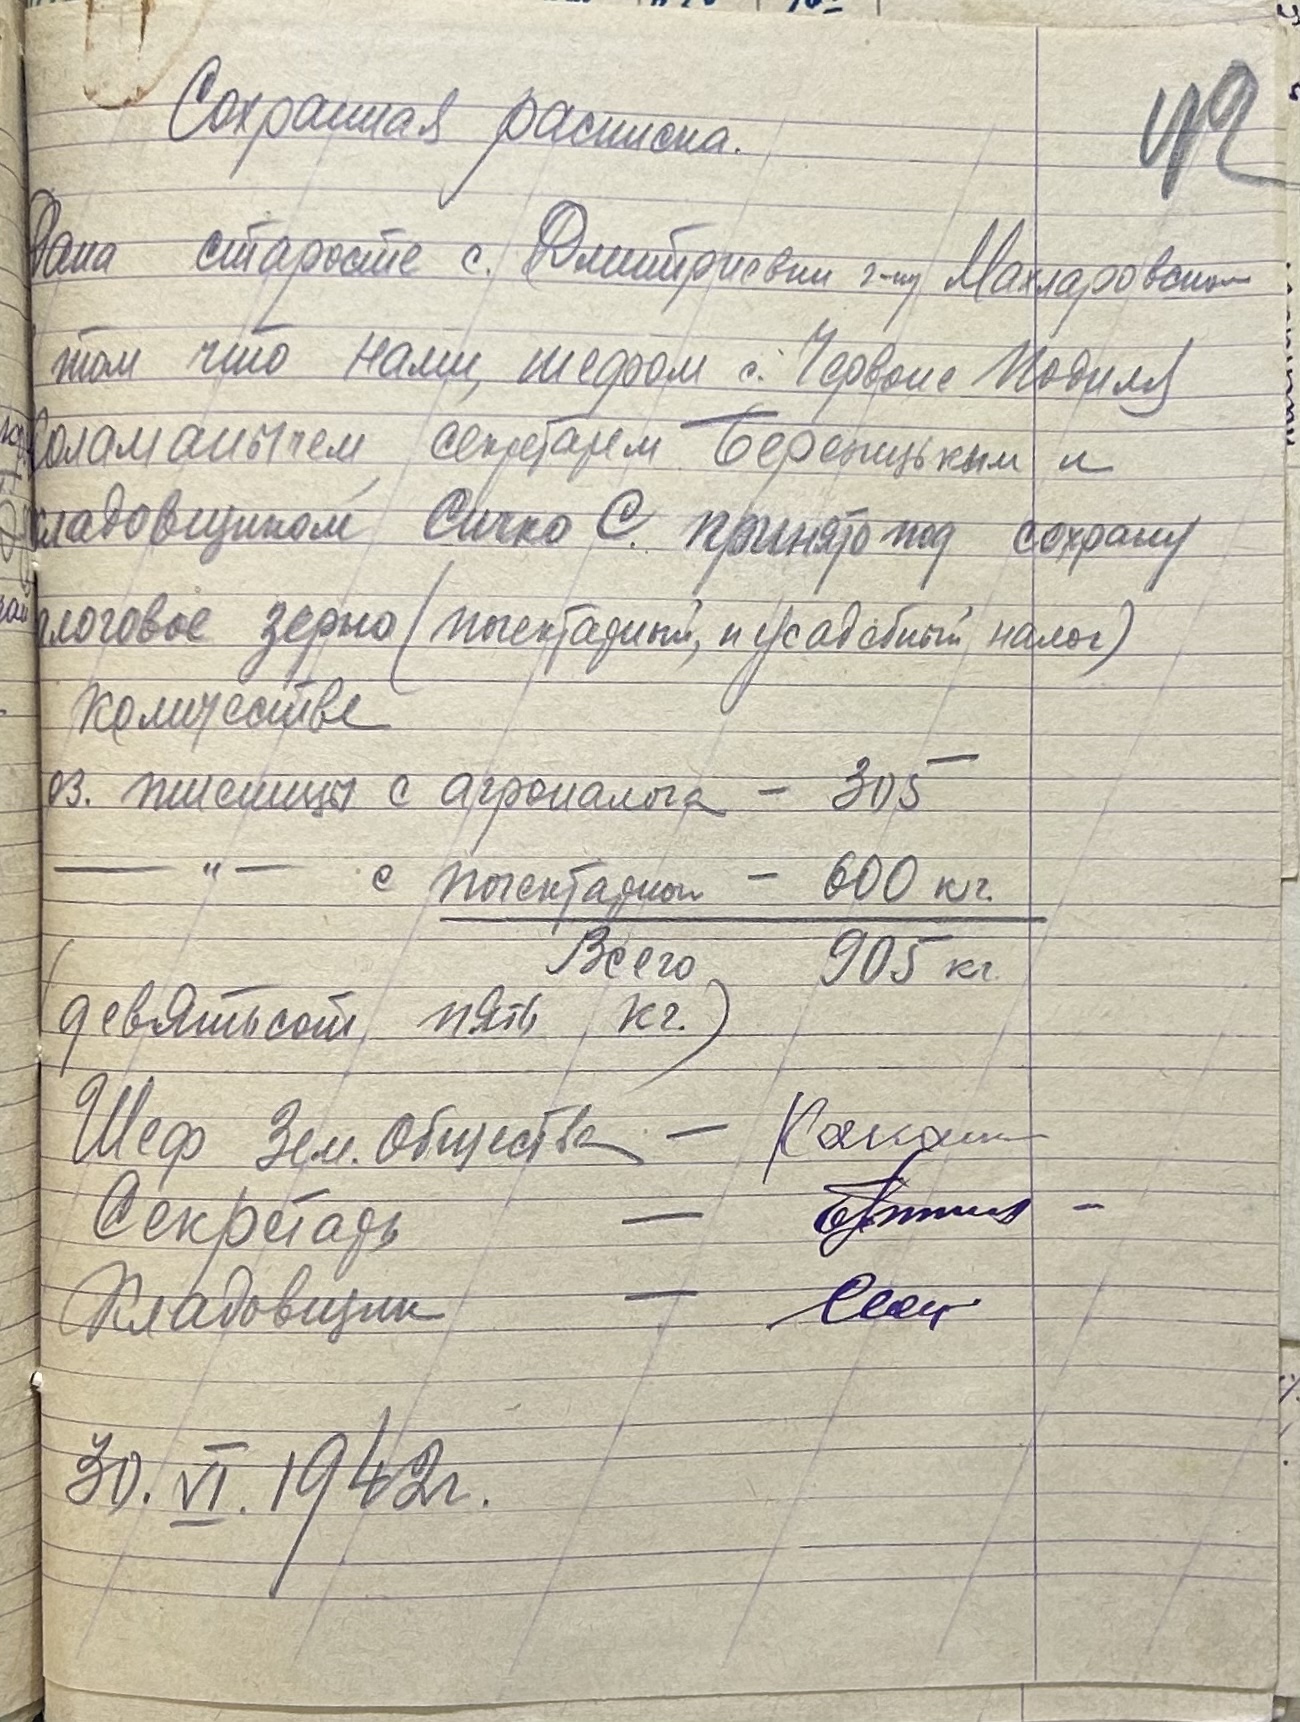 42
Сохранная расписка.
Дана старосте с. Дмитриевки г-ну Махларовском
том что нами, шефом с. Червоне Подилля
секретарем Береницьким и
кладовщиком Сичко С. принято под сохрану
алоговое зерно (погектадный, и усадебный налог)
количестве
оз. пшеницы с агроналога - 305
— " — с погектадный - 600 кг.
Всего 905 кг.
(девятьсот пять кг.)
Шеф Зем. Общества —
Секретарь —
Кладовщик —
30. VI. 1942г.